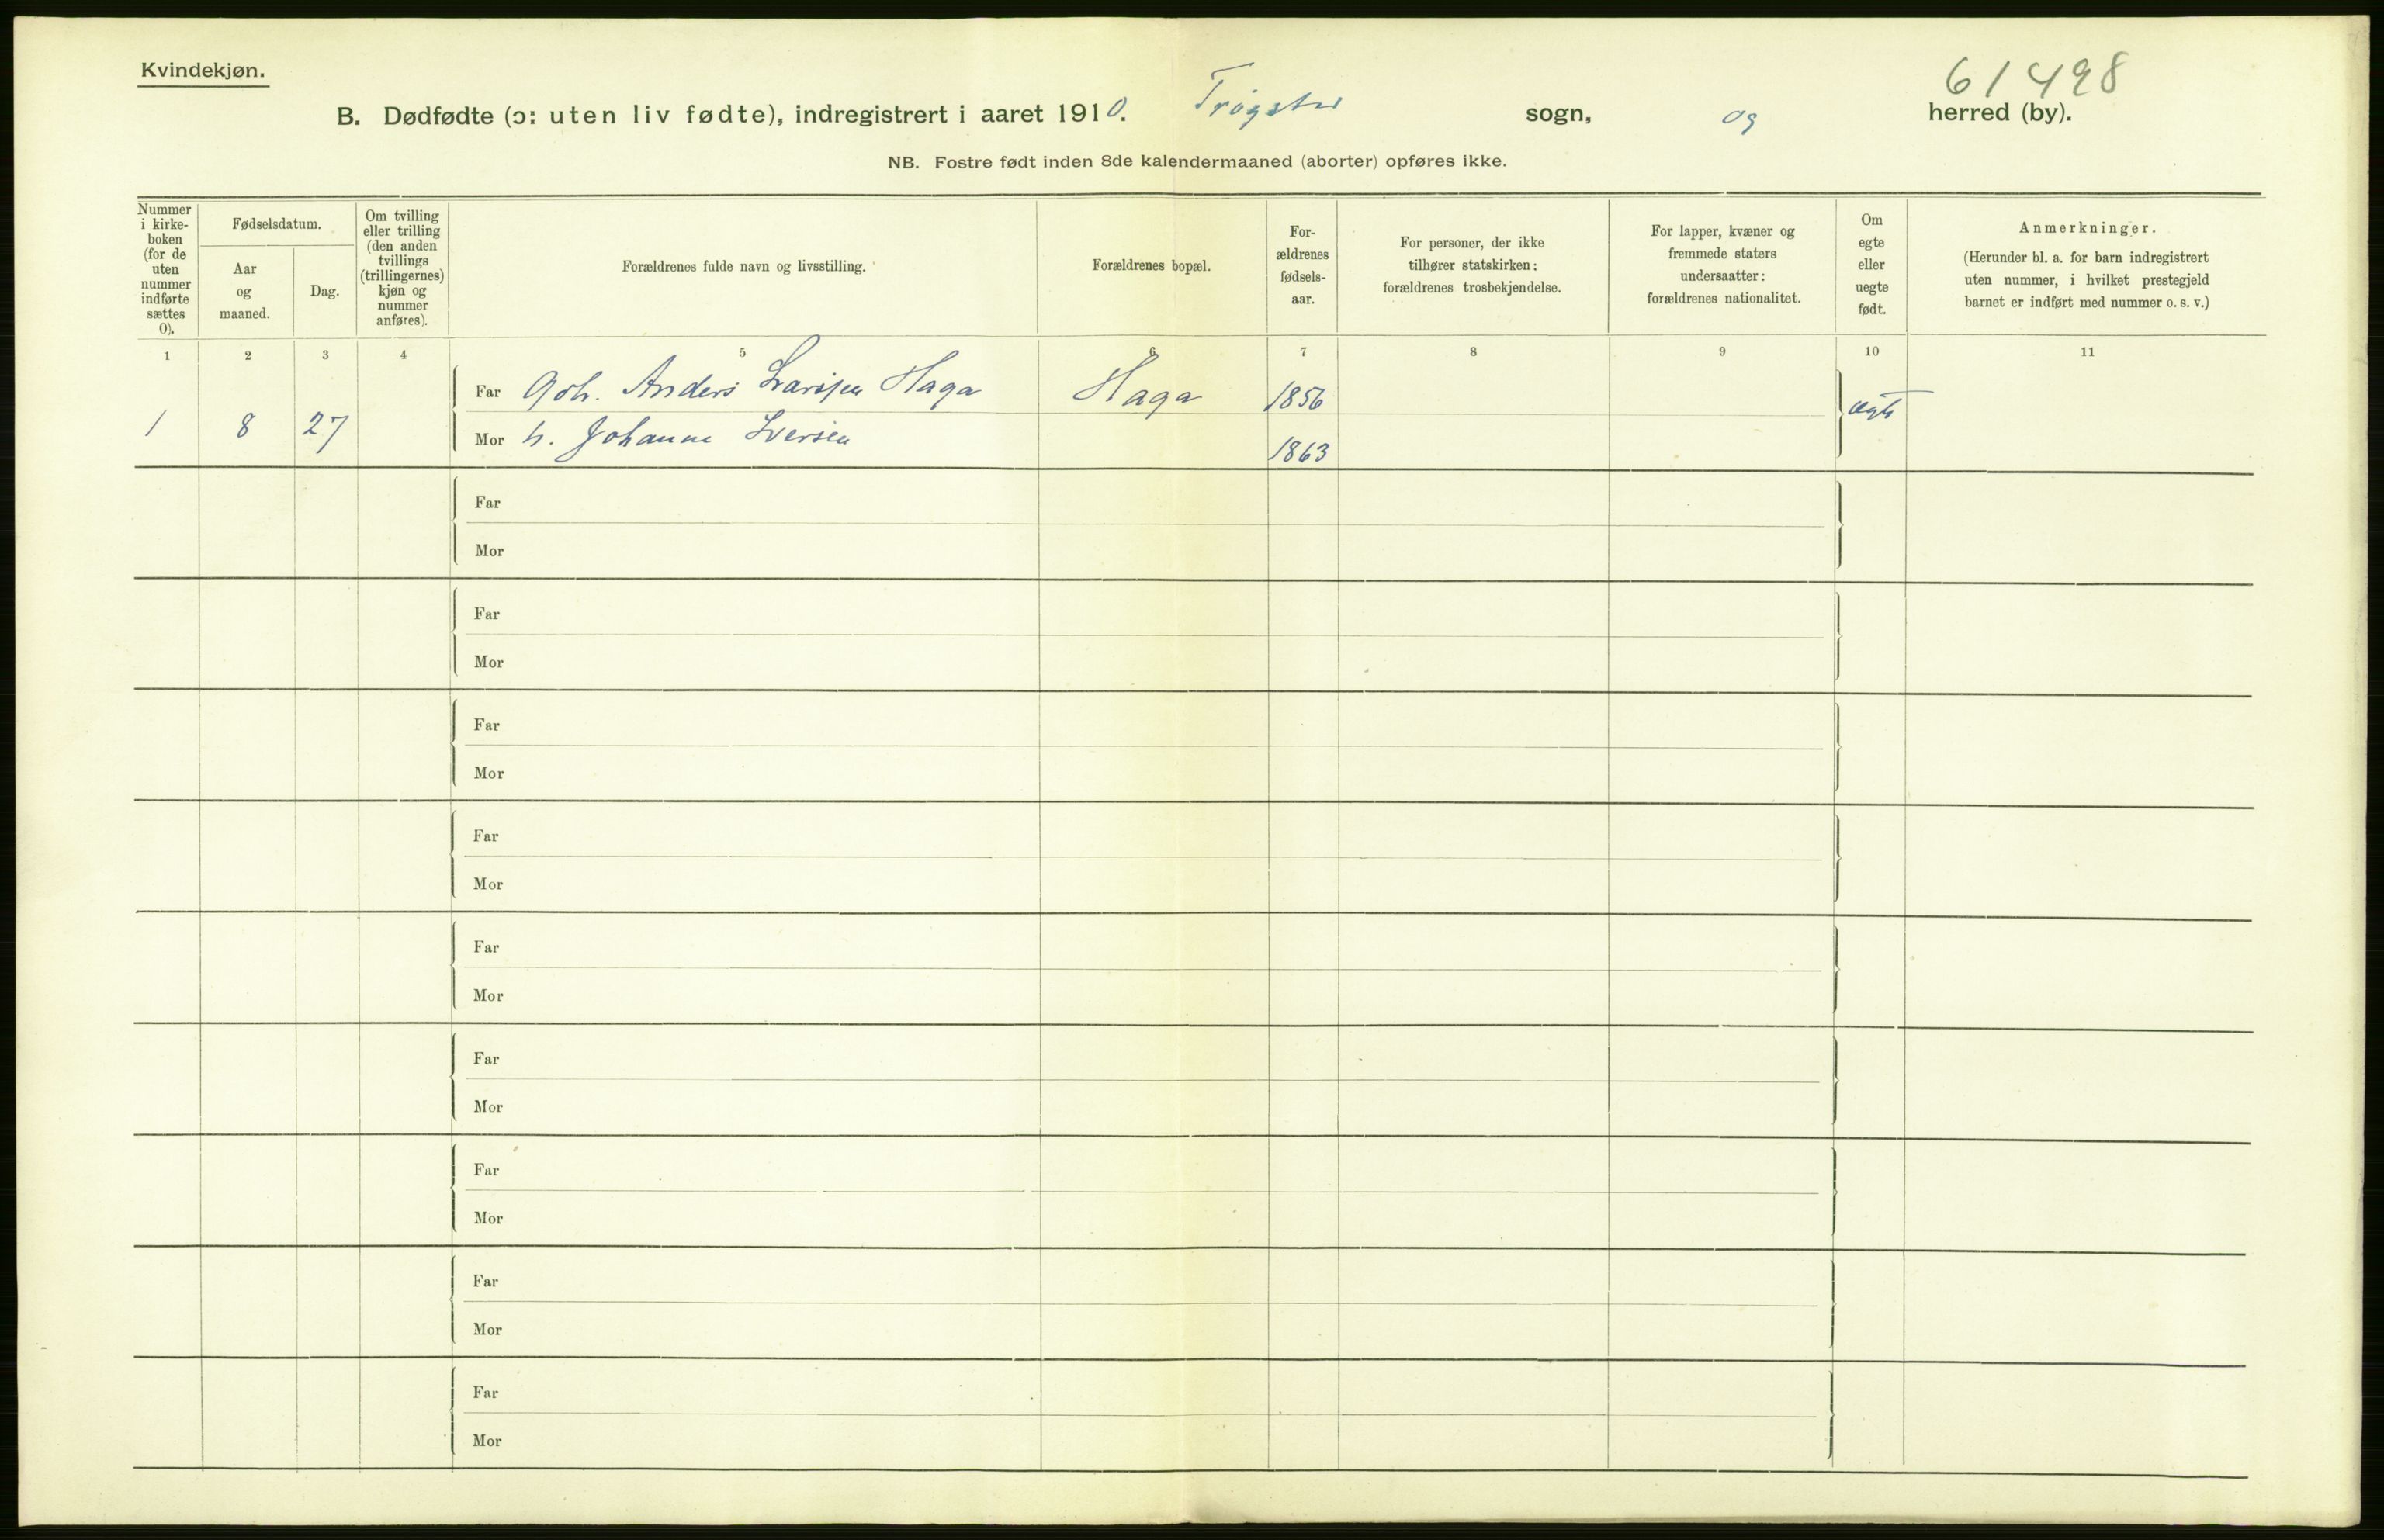 Kvindekjøn.
61498
B. Dødfødte (ɔ: uten liv fødte), indregistrert i aaret 1910. Trøgstad sogn, og herred (by).
NB. Fostre født inden 8de kalendermaaned (aborter) opføres ikke.
Nummer
i kirke-
boken
(for de
uten
nummer
indførte
sættes
0).
Fødselsdatum.
Aar
og
maaned.
Dag.
Om tvilling
eller trilling
(den anden
tvillings
(trillingernes)
kjøn og
nummer
anføres).
Forældrenes fulde navn og livsstilling.
Forældrenes bopæl.
For-
ældrenes
fødsels-
aar.
For personer, der ikke
tilhører statskirken:
forældrenes trosbekjendelse.
For lapper, kvæner og
fremmede staters
undersaatter:
forældrenes nationalitet.
Om
egte
eller
uegte
født.
Anmerkninger.
(Herunder bl. a. for barn indregistrert
uten nummer, i hvilket prestegjeld
barnet er indført med nummer o. s. v.)
1 2 3 4 5 6 7 8 9 10 11
Far Anders Larsen Haga Haga 1856 egte
1 8 27 Mor h. Johanne Iversen 1863
Far
Mor
Far
Mor
Far
Mor
Far
Mor
Far
Mor
Far
Mor
Far
Mor
Far
Mor
Far
Mor